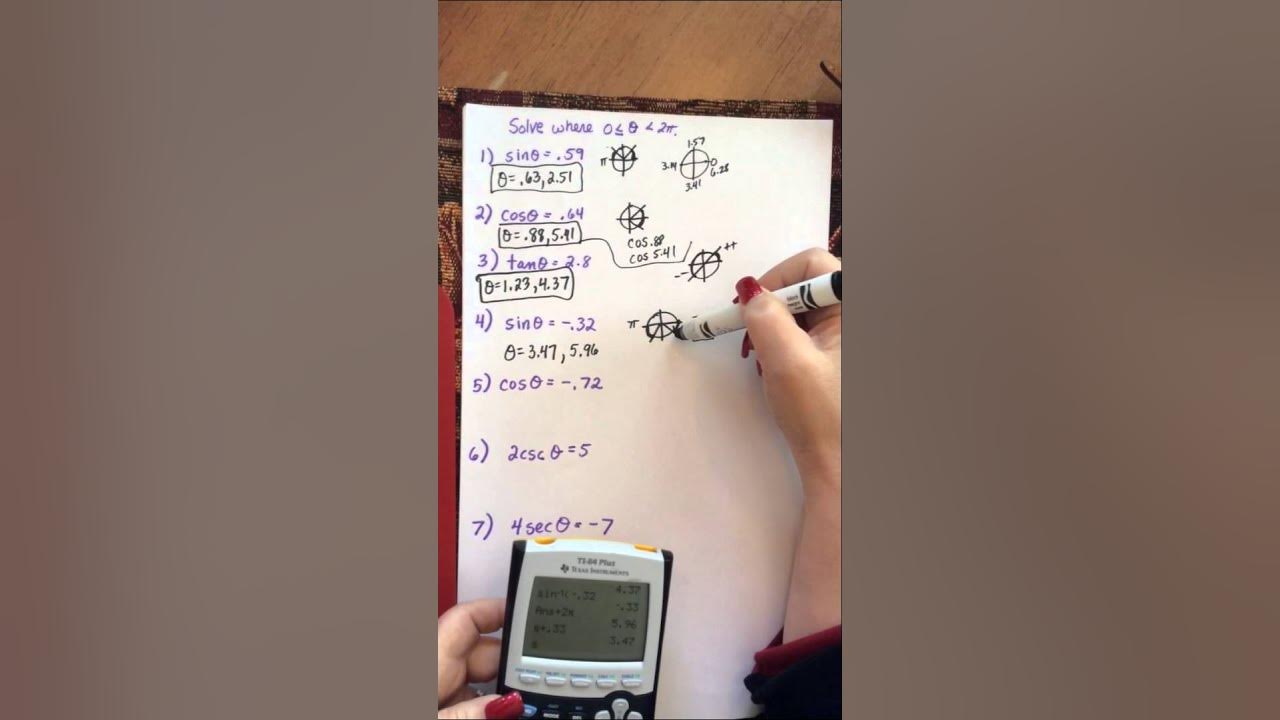 Solve where 0 ≤ θ < 2π.
1) sinθ = .59
θ = .63, 2.51
π
1.57
3.14
0
6.28
3.41
2) cosθ = .64
θ = .88, 5.41
cos .88
cos 5.41
3) tanθ = 2.8
θ = 1.23, 4.37
++
--
4) sinθ = -.32
θ = 3.47, 5.96
π
5) cosθ = -.72
6) 2cscθ = 5
7) 4secθ = -7
TI-84 Plus
TEXAS INSTRUMENTS
4.37
sin⁻¹(-.32
-.33
Ans+2π
5.96
π+.33
3.47
MODE
DEL